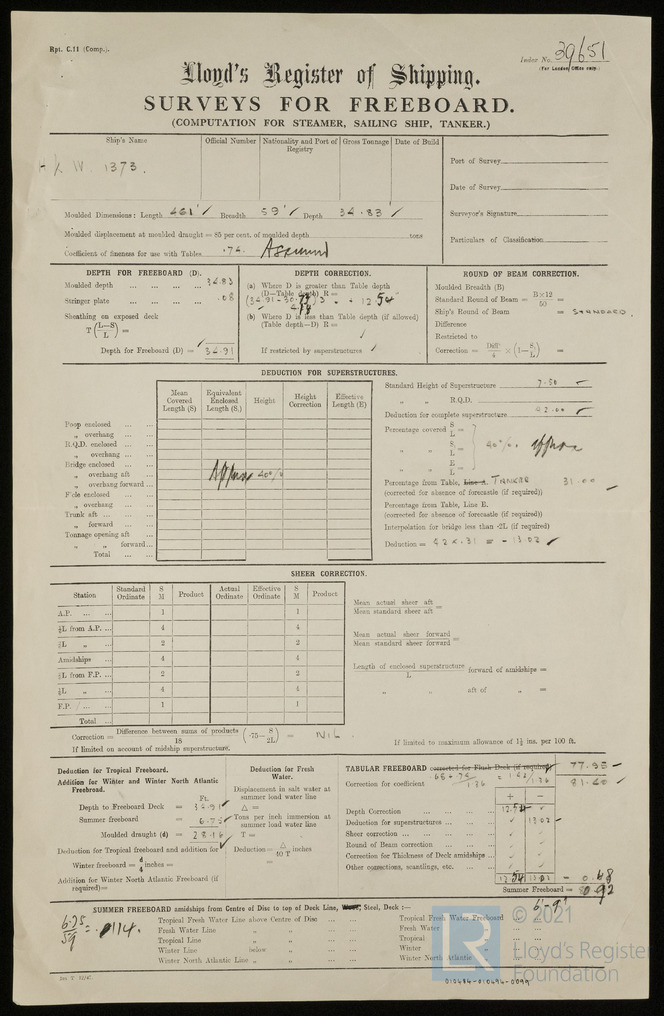 Rpt. C.11 (Comp.).
Index No. 39651
(For London Office only.)
Lloyd's Register of Shipping.
SURVEYS FOR FREEBOARD.
(COMPUTATION FOR STEAMER, SAILING SHIP, TANKER.)
Ship's Name Official Number Nationality and Port of Registry Gross Tonnage Date of Build
1373.
Port of Survey
Date of Survey
Surveyor's Signature
Particulars of Classification
Moulded Dimensions: Length 461' Breadth 59' Depth 34.83'
Moulded displacement at moulded draught = 85 per cent. of moulded depth tons
Coefficient of fineness for use with Tables .74 Assumed
DEPTH FOR FREEBOARD (D).
Moulded depth ... ... ... 34.83
Stringer plate ... ... ... .08
Sheathing on exposed deck
T (L—S/L) =
Depth for Freeboard (D) = 34.91
DEPTH CORRECTION.
(a) Where D is greater than Table depth
(D—Table depth) R =
(34.91 - 30.73) 3 = + 12.54
4.18
(b) Where D is less than Table depth (if allowed)
(Table depth—D) R =
If restricted by superstructures
ROUND OF BEAM CORRECTION.
Moulded Breadth (B)
Standard Round of Beam = B×12/50 =
Ship's Round of Beam = STANDARD.
Difference
Restricted to
Correction = Diff/4 × (1—S/L) =
DEDUCTION FOR SUPERSTRUCTURES.
Mean Covered Length (S) Equivalent Enclosed Length (S₁) Height Height Correction Effective Length (E)
Poop enclosed ... ...
„ overhang ... ...
R.Q.D. enclosed ... ...
„ overhang ... ...
Bridge enclosed ... ...
„ overhang aft ... Approx 40%
„ overhang forward ...
F'cle enclosed ... ...
„ overhang ... ...
Trunk aft ... ... ...
„ forward ... ...
Tonnage opening aft ...
„ „ forward ...
Total ... ...
Standard Height of Superstructure 7.50
„ „ R.Q.D.
Deduction for complete superstructure 42.00
Percentage covered S/L =
„ „ S₁/L = 40%. approx
„ „ E/L =
Percentage from Table, Line A. TANKER 31.00
(corrected for absence of forecastle (if required))
Percentage from Table, Line B.
(corrected for absence of forecastle (if required))
Interpolation for bridge less than ·2L (if required)
Deduction = 42 x .31 = - 13.02
SHEER CORRECTION.
Station Standard Ordinate S M Product Actual Ordinate Effective Ordinate S M Product
A.P. ... ... 1 1
⅙L from A.P. ... 4 4
⅓L „ ... 2 2
Amidships ... 4 4
⅓L from F.P. ... 2 2
⅙L „ ... 4 4
F.P. ... ... 1 1
Total ...
Mean actual sheer aft / Mean standard sheer aft =
Mean actual sheer forward / Mean standard sheer forward =
Length of enclosed superstructure / L forward of amidships =
„ „ aft of „ =
Correction = Difference between sums of products / 18 (·75— S/2L) = NIL
If limited on account of midship superstructure.
If limited to maximum allowance of 1½ ins. per 100 ft.
Deduction for Tropical Freeboard.
Addition for Winter and Winter North Atlantic Freeboard.
Ft.
Depth to Freeboard Deck = 34.91
Summer freeboard = 6.75
Moulded draught (d) = 28.16
Deduction for Tropical freeboard and addition for
Winter freeboard = d/4 inches =
Addition for Winter North Atlantic Freeboard (if required) =
Deduction for Fresh Water.
Displacement in salt water at summer load water line
Δ =
Tons per inch immersion at summer load water line
T =
Deduction = Δ/40 T inches
=
TABULAR FREEBOARD corrected for Flush Deck (if required) 77.95
Correction for coefficient .68+.74/1.36 = 1.42/1.36 81.60
+ −
Depth Correction ... ... ... 12.54
Deduction for superstructures ... ... 13.02
Sheer correction ... ... ...
Round of Beam correction ... ...
Correction for Thickness of Deck amidships ...
Other corrections, scantlings, etc. ... ...
12.54 13.02 - 0.48
Summer Freeboard =
SUMMER FREEBOARD amidships from Centre of Disc to top of Deck Line, Wood, Steel, Deck:—
6.75/59 = .114.
Tropical Fresh Water Line above Centre of Disc ... ...
Fresh Water Line „ „ ... ...
Tropical Line „ „ ... ...
Winter Line below „ ... ...
Winter North Atlantic Line „ „ ... ...
Tropical Fresh Water Freeboard ... ...
Fresh Water „ ... ...
Tropical „ ... ...
Winter „ ... ...
Winter North Atlantic „ ... ...
© 2021
Lloyd's Register
Foundation
010484-010496-0099